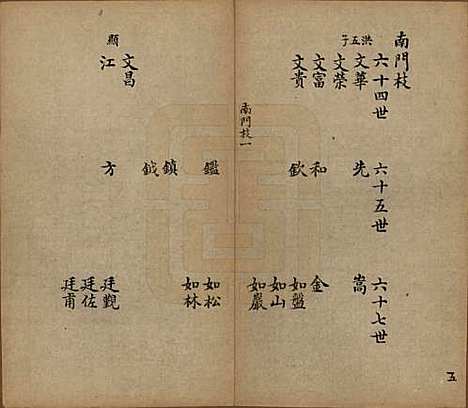 南門枝
六十四世　六十五世　六十七世
洪五子
文華　先　嵩
文榮
文富　和　金
文貴　欽　如盤
如山
如巖
五
南門枝一
鑑　如松
如林
鎮
鉞
文昌
顯
江　方　廷觀
廷佐
廷甫